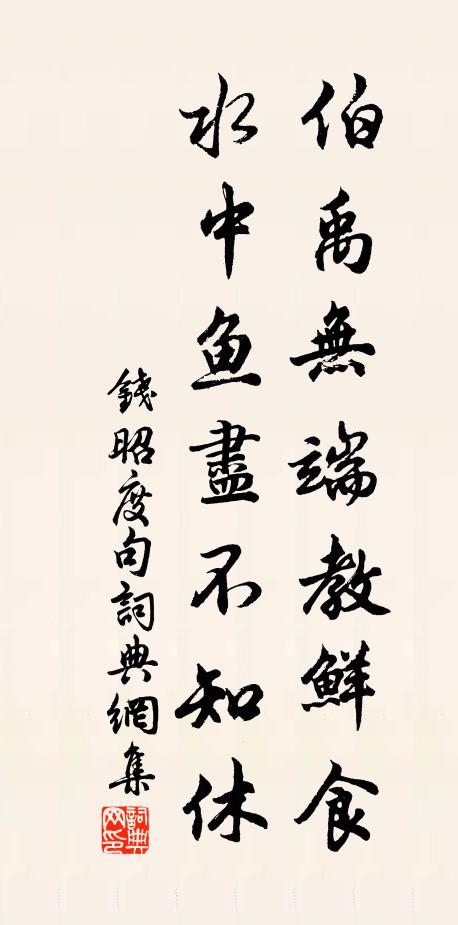 伯禹無端教鮮食
水中魚盡不知休
錢昭度句詞典網集
詞典網印